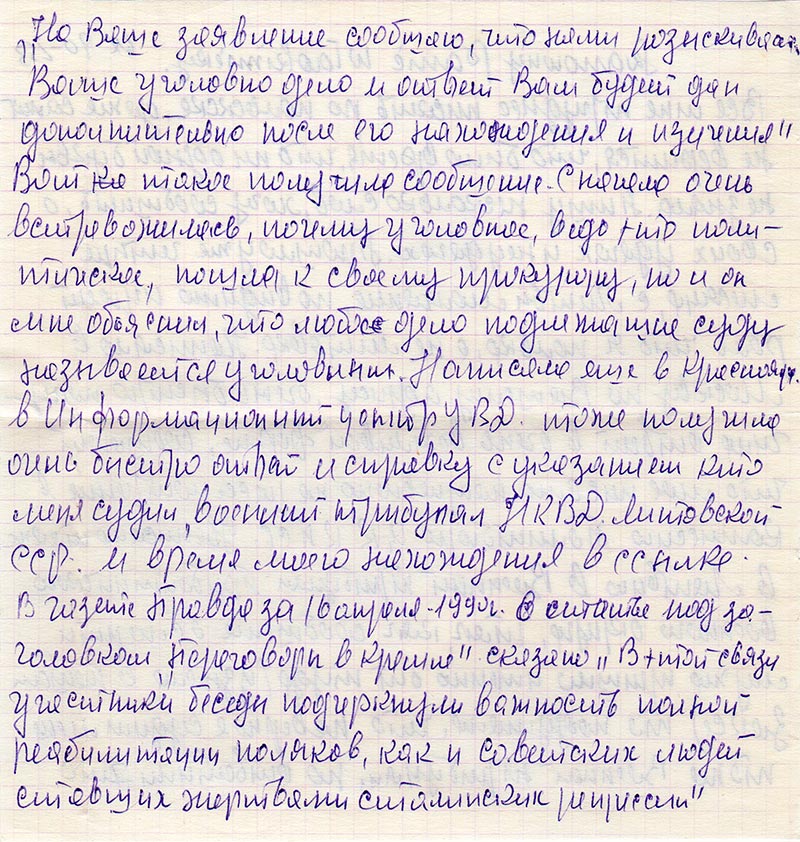 „На Ваше заявление сообщаю, что нами разыскивается
Ваше уголовно дело и ответ Вам будет дан
дополнительно после его нахождения и изучения"
Вот такое получила сообщение. Сначала очень
встревожилась, почему уголовное, ведь это поли-
тическое, пошла к своему прокурору, но и он
мне объяснил, что любое дело подлежащие суду
называется уголовным. Написала еще в Красноярск.
в Информационный центр УВД. тоже получила
очень быстро ответ и справку с указанием кто
меня судил „военный трибунал НКВД Литовской
ССР. и время моего нахождения в ссылке.
В газете Правда за 16 апреля-1990г. в статье под за-
головком „Переговоры в Кремле" сказано „В этой связи
участники беседы подчеркнули важность полной
реабилитации поляков, как и советских людей
ставших жертвами сталинских репрессий"